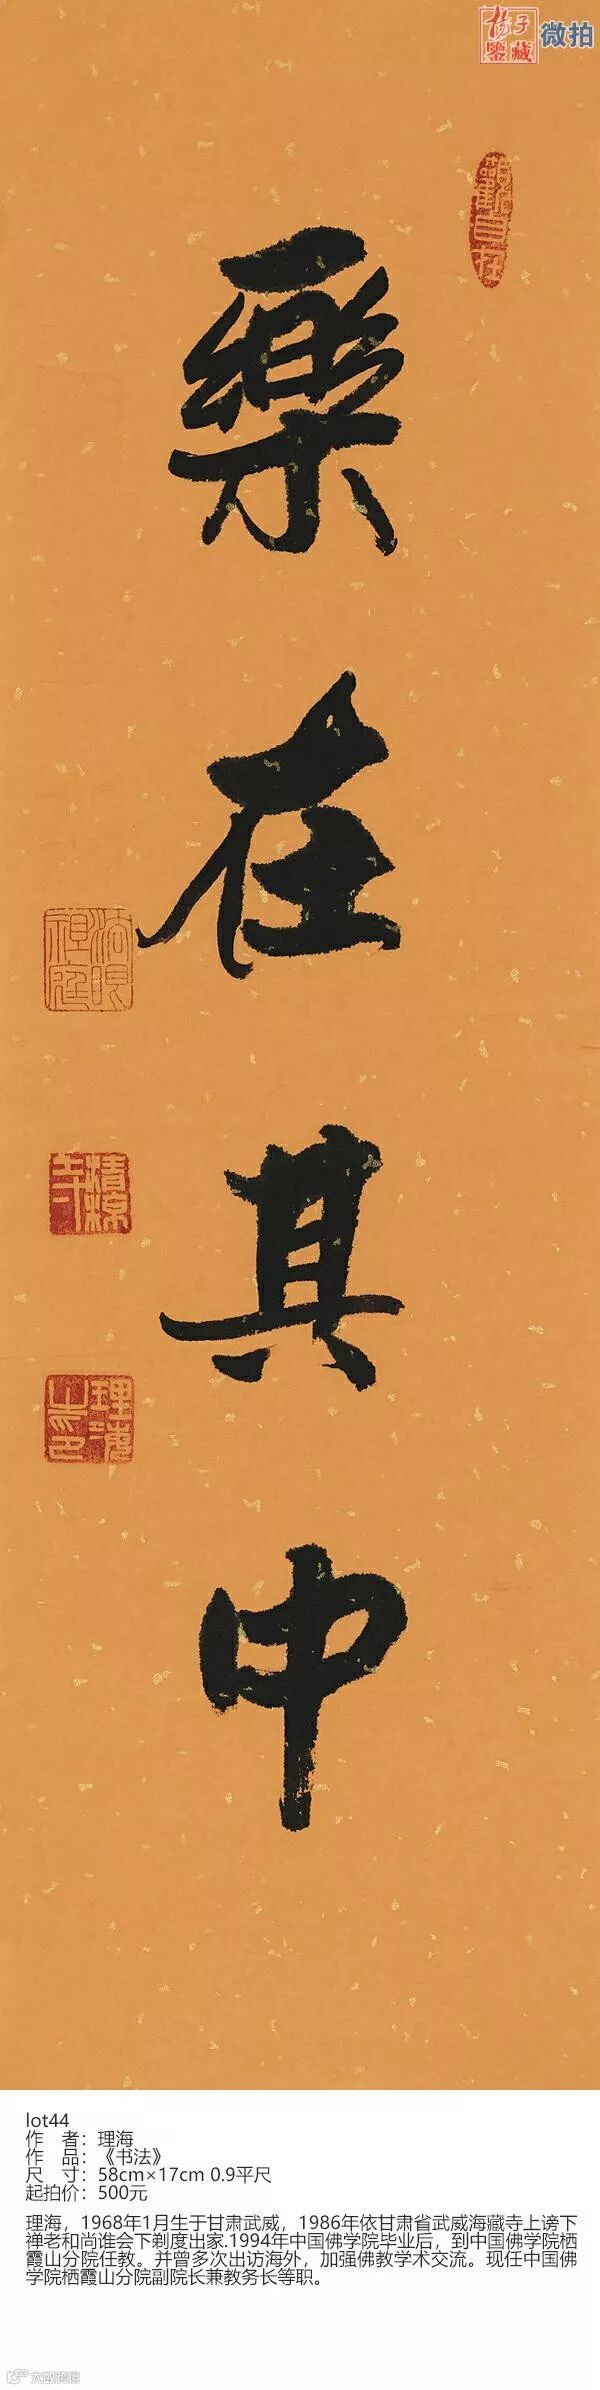 杨子
鑒藏
微拍
觀自在
樂在其中
法眼
祖庭
清凉
寺
理海
之印
lot44
作 者：理海
作 品：《书法》
尺 寸：58cm×17cm 0.9平尺
起拍价：500元
理海，1968年1月生于甘肃武威，1986年依甘肃省武威海藏寺上谤下
禅老和尚谁会下剃度出家.1994年中国佛学院毕业后，到中国佛学院栖
霞山分院任教。并曾多次出访海外，加强佛教学术交流。现任中国佛
学院栖霞山分院副院长兼教务长等职。
大数跨境